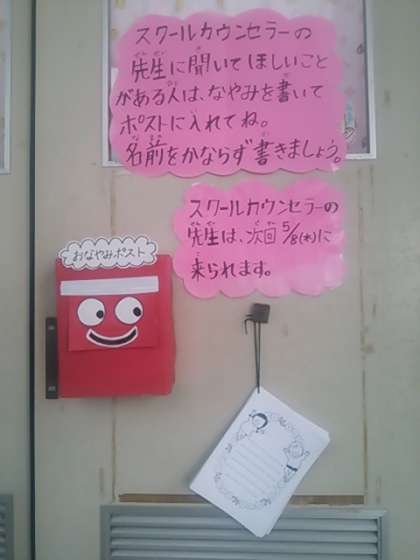 スクールカウンセラーの
先生に聞いてほしいこと
がある人は、なやみを書いて
ポストに入れてね。
名前をかならず書きましょう。
スクールカウンセラーの
先生は、次回5/8(木)に
来られます。
おなやみポスト